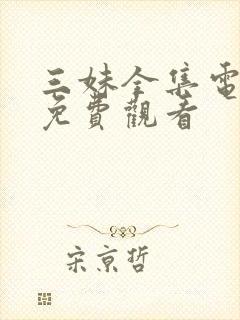 三妹全集電
免費觀看
宋京哲